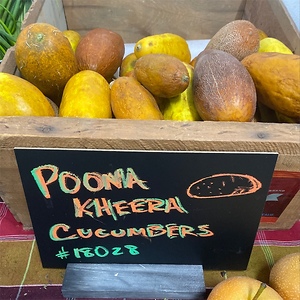 POONA
KHEERA
CUCUMBERS
#18028